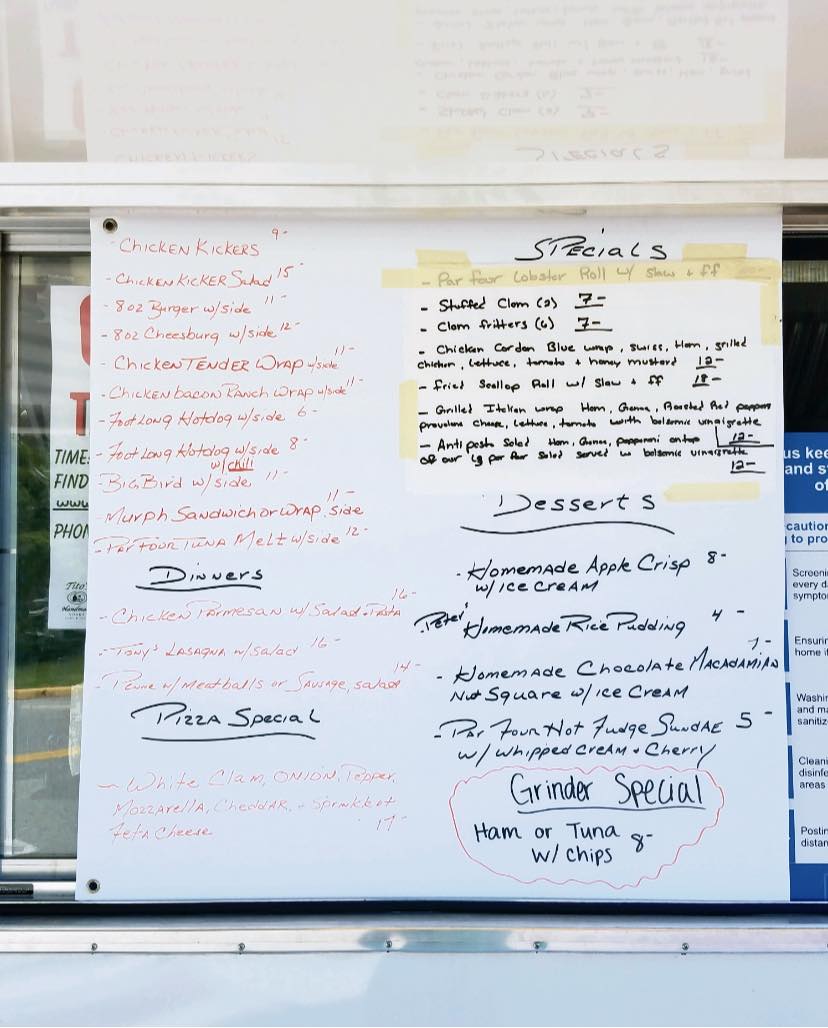 - Chicken Kickers 9-
- Chicken Kicker Salad 15-
- 8oz Burger w/side 11-
- 8oz Cheesburg w/side 12-
- Chicken Tender Wrap w/side 11-
- Chicken bacon Ranch Wrap w/side 11-
- Foot Long Hotdog w/side 6-
- Foot Long Hotdog w/side 8-
w/chili
- Big Bird w/side 11-
- Murph Sandwich or Wrap, side 11-
- Par Four Tuna Melt w/side 12-
Dinners
- Chicken Parmesan w/ Salad + Pasta 16-
- Tony's Lasagna w/ Salad 16-
- Penne w/ Meatballs or Sausage, salad 14-
Pizza Special
- White Clam, Onion, Pepper,
Mozzarella, Cheddar, + Sprinkle of
Feta Cheese 17-
Specials
- Par four Lobster Roll w/ Slaw + ff
- Stuffed Clam (2) 7-
- Clam fritters (6) 7-
- Chicken Cordon Blue wrap, swiss, Ham, grilled
chicken, lettuce, tomato + honey mustard 12-
- Fried Scallop Roll w/ Slaw + ff 18-
- Grilled Italian wrap Ham, Genoa, Roasted Red peppers
provolone cheese, lettuce, tomato with balsamic vinaigrette
12-
- Antipasto Salad Ham, Genoa, pepperoni ontop
of our lg par four Salad served w balsamic vinaigrette
12-
Desserts
- Homemade Apple Crisp 8-
w/ Ice Cream
- Petes' Homemade Rice Pudding 4-
- Homemade Chocolate Macadamian 7-
Nut Square w/ Ice Cream
- Par Four Hot Fudge Sundae 5-
w/ whipped cream + Cherry
Grinder Special
Ham or Tuna
w/ chips 8-
TIME
FIND
www
PHON
Tito's
Handma
us kee
and s
of
caution
to pro
Screeni
every d
sympto
Ensurin
home i
Washin
and ma
sanitiz
Cleani
disinfe
areas
Postin
distan